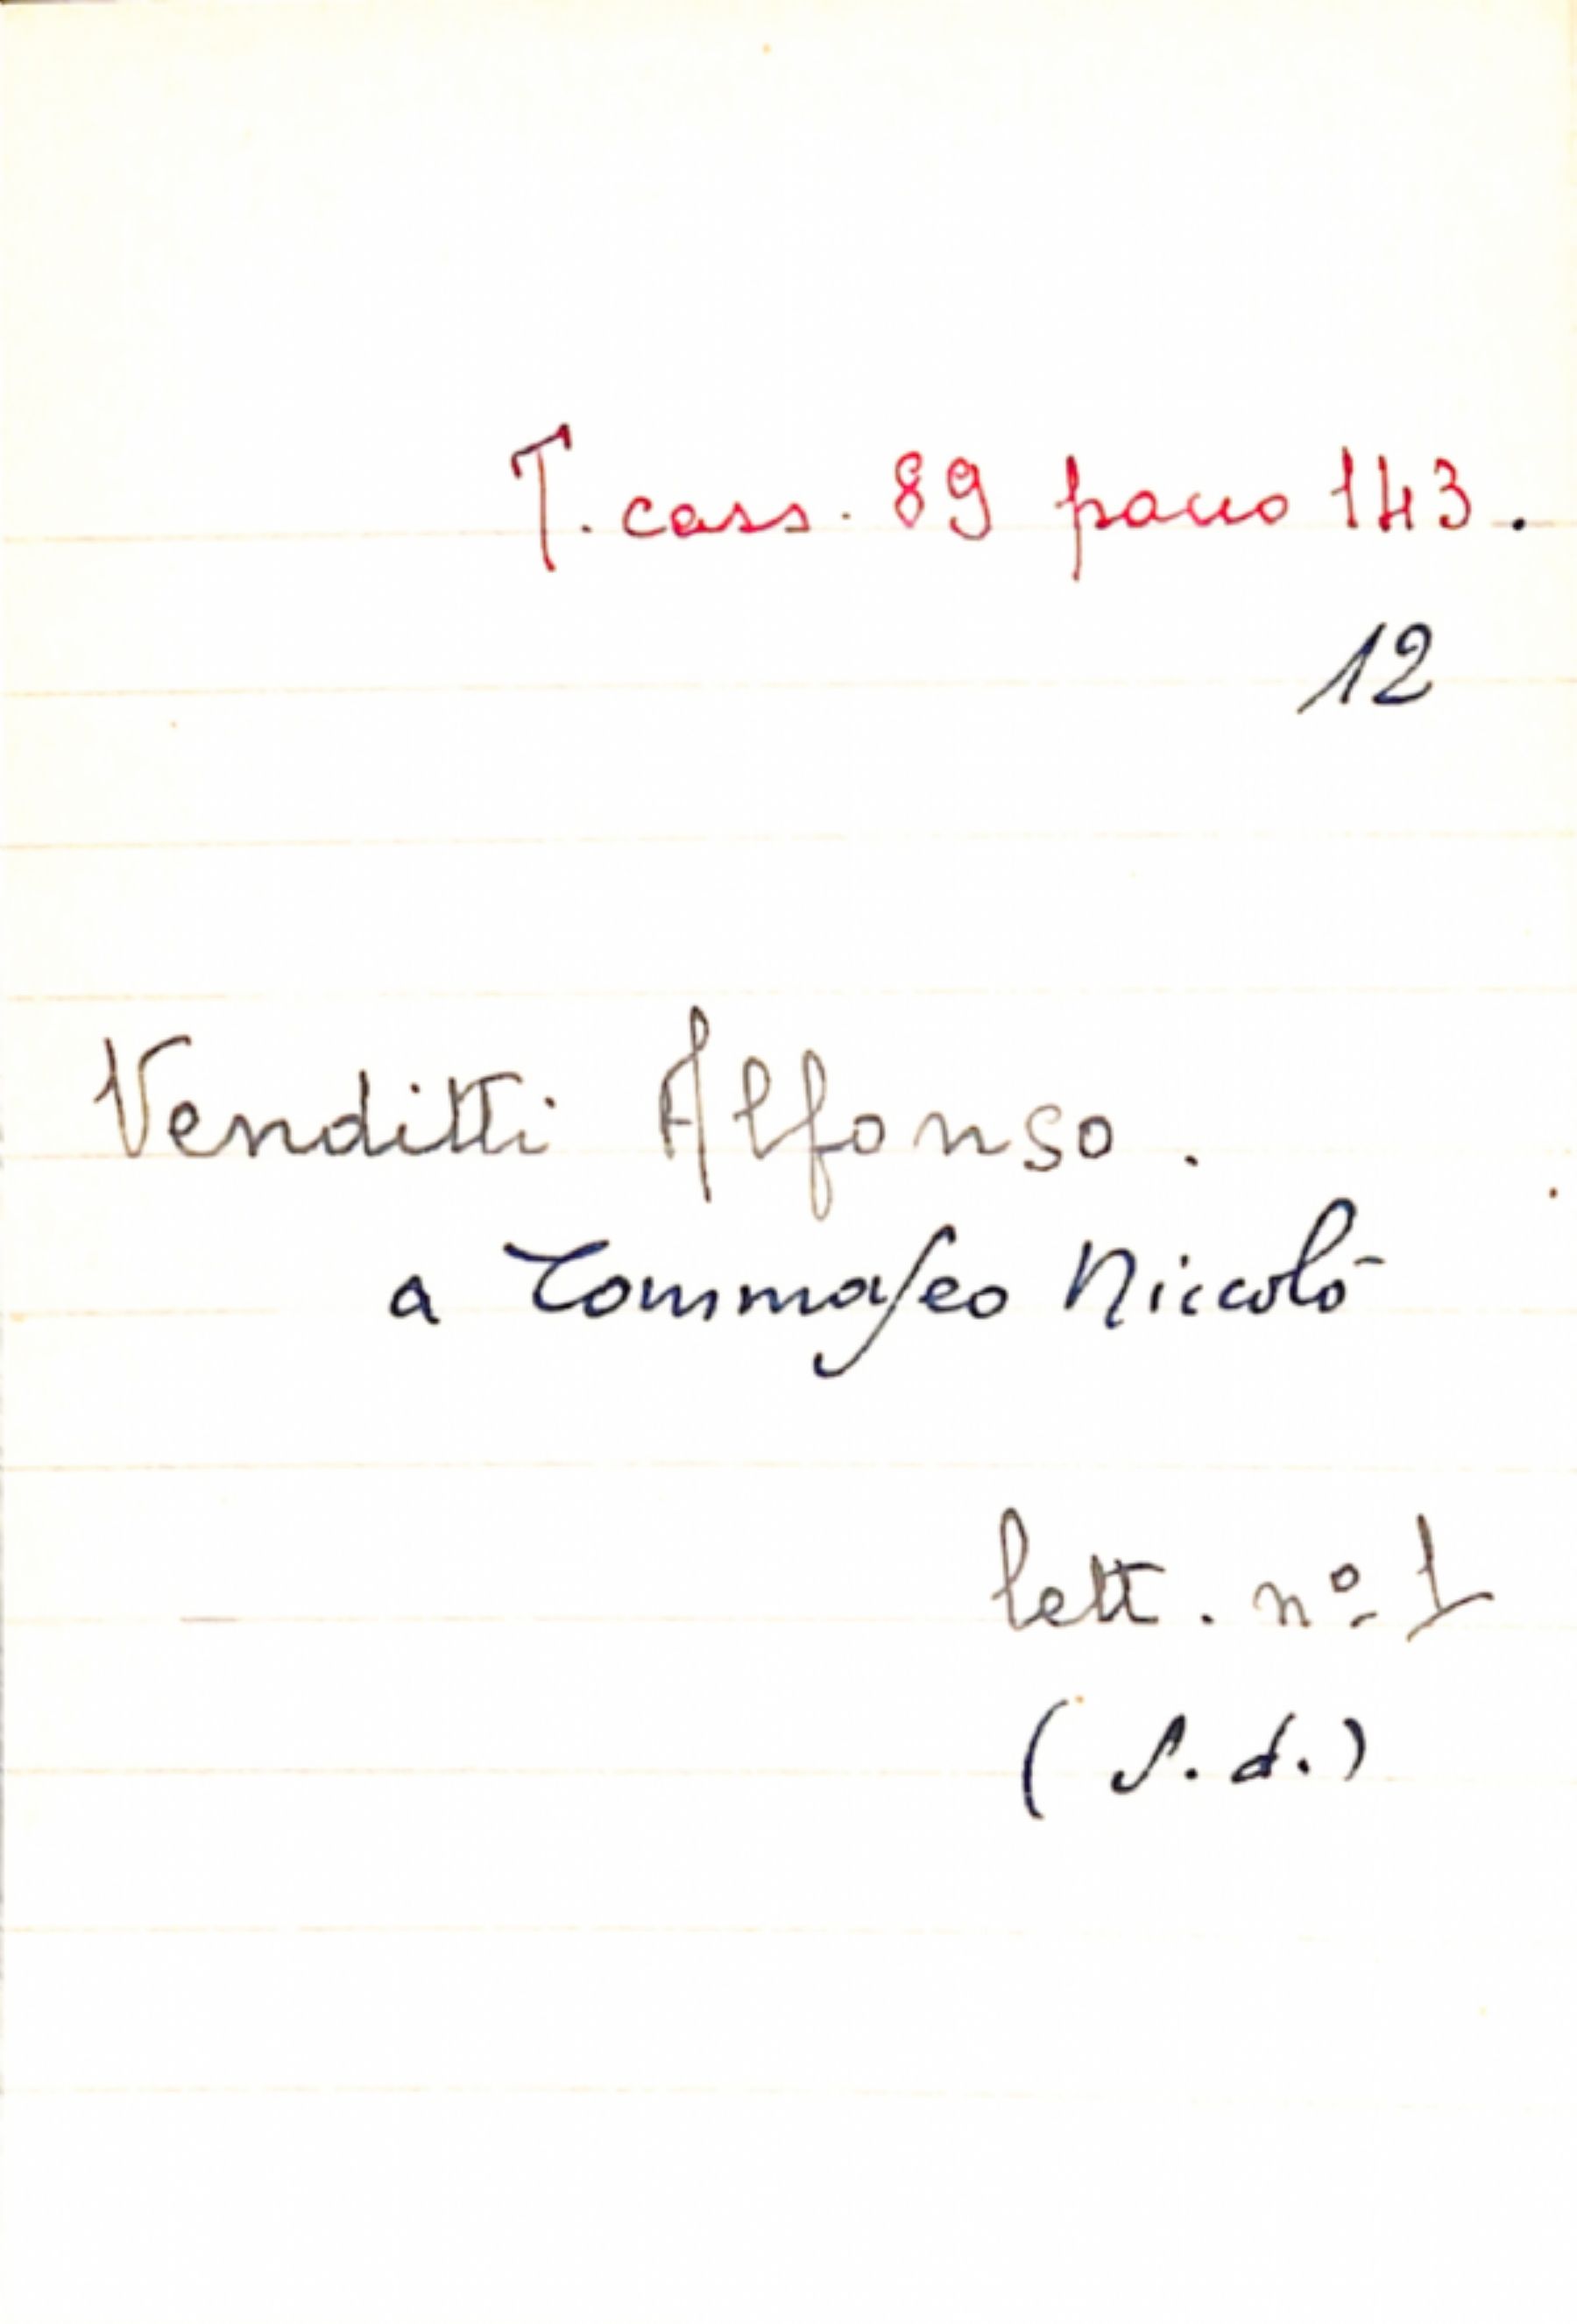 T. cass. 89 pacco 143.
12
Venditti Alfonso.
a Tommaseo Niccolò
lett. nº 1
(s.d.)